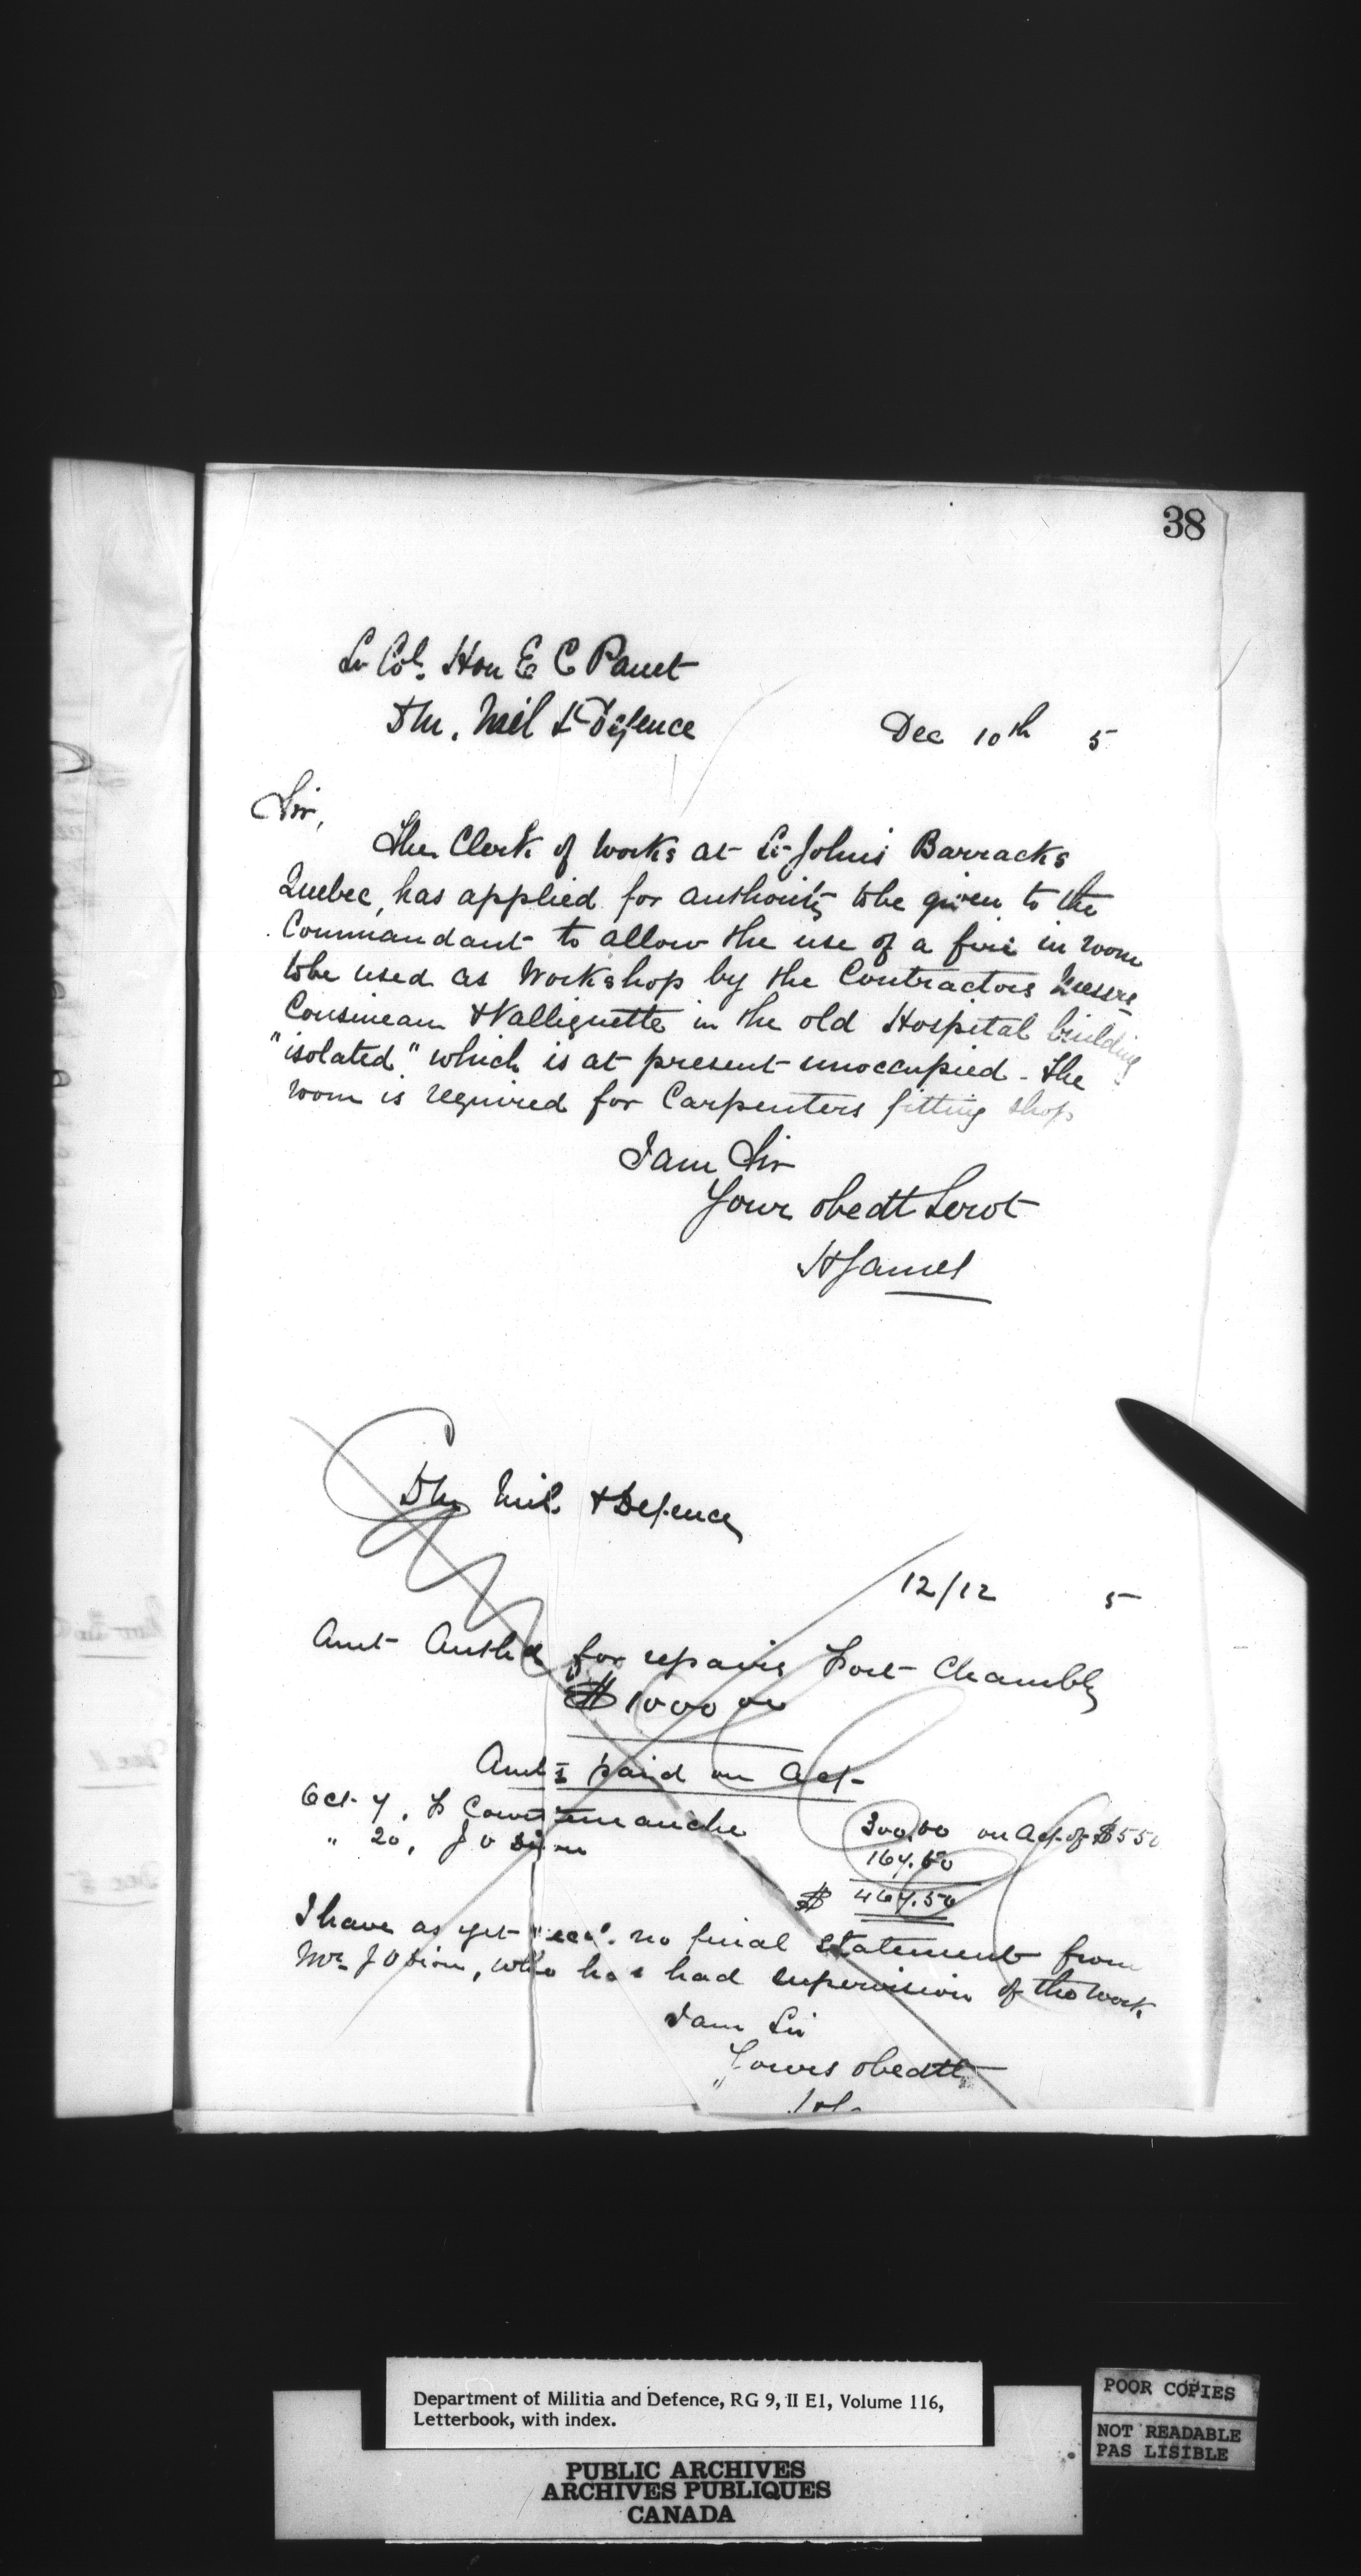 38
Lt Col. Hon E C Panet
DM. Mil & Defence
Dec 10th 5
Sir,
The Clerk of Works at St Johns Barracks
Quebec, has applied for authority to be given to the
Commandant to allow the use of a fire in room
to be used as Workshop by the Contractors Messrs
Cousineau & Valliquette in the old Hospital building
"isolated" which is at present unoccupied - The
room is required for Carpenters fitting shop
I am Sir
Your obedt Servt
H James
DM Mil & Defence
12/12 5
Amt Authd for repairs Fort Chambly
$1000 00
Amts paid on Act
Oct 7, F Courtemanche 300.00 on Act of $550
" 20, J O Dion 167.50
$ 467.50
I have as yet recd. no final statement from
Mr J O Dion, who has had supervision of the work.
I am Sir
Yours obedtly
Department of Militia and Defence, RG 9, II E1, Volume 116,
Letterbook, with index.
PUBLIC ARCHIVES
ARCHIVES PUBLIQUES
CANADA
POOR COPIES
NOT READABLE
PAS LISIBLE